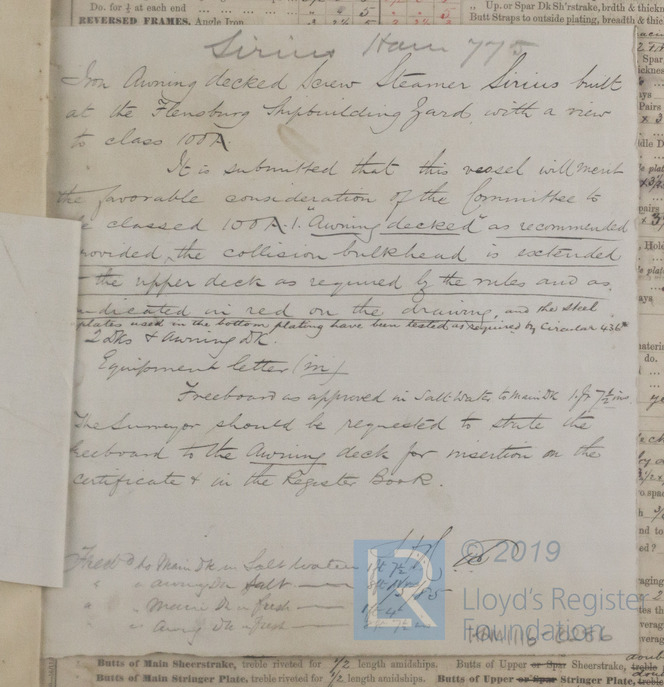 Do. for ¼ at each end
REVERSED FRAMES, Angle Iron
Up. or Spar Dk Sh'rstrake, brdth & thickn
Butt Straps to outside plating, breadth & thic
Sirius Ham 775
Iron Awning decked Screw Steamer Sirius built
at the Flensburg Shipbuilding Yard, with a view
to class 100A
It is submitted that this vessel will merit
the favorable consideration of the Committee to
be classed 100A.1. "Awning decked" as recommended
provided, the collision bulkhead is extended
the upper deck as required by the rules and as
indicated in red on the drawing, and the steel
plates used in the bottom plating have been tested as required by Circular 436
2 Dks & Awning Dk.
Equipment letter (m)
Freeboard as approved in Salt Water to Main Dk 1 ft 7½ ins
The Surveyor should be requested to state the
freeboard to the Awning deck for insertion on the
certificate & in the Register Book.
Freebd to Main Dk in Salt Water 1ft 7½
" " Awng Dk Salt
" Main Dk in fresh 1ft
" " Awng Dk in fresh
© 2019
Lloyd's Register
Foundation
Butts of Main Sheerstrake, treble riveted for ½ length amidships.
Butts of Upper or Spar Sheerstrake, treble
Butts of Main Stringer Plate, treble riveted for ½ length amidships.
Butts of Upper or Spar Stringer Plate, treble